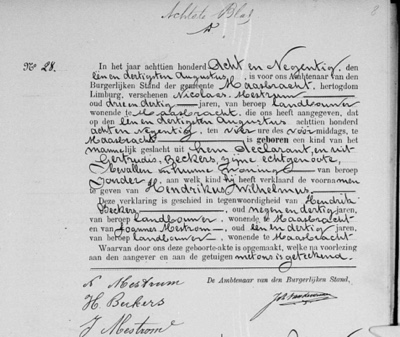 Achtste Blad
8
No. 28.
In het jaar achttien honderd Acht en Negentig, den
een en dertigsten Augustus, is voor ons Ambtenaar van den
Burgerlijken Stand der gemeente Maasbracht, hertogdom
Limburg, verschenen Nicolaas Mestrum
oud drie en dertig jaren, van beroep landbouwer
wonende te Maasbracht, die ons heeft aangegeven, dat
op den een en dertigsten Augustus achttien honderd
acht en negentig, ten vier ure des voormiddags, te
Maasbracht is geboren een kind van het
mannelijk geslacht uit hem Declarant, en uit
Gertrudis Beckers, zijne echtgenoote,
bevallen in hunne woning, van beroep
zonder, aan welk kind hij heeft verklaard de voornamen
te geven van Hendrikus Wilhelmus.
Deze verklaring is geschied in tegenwoordigheid van Hendrik
Beckers oud negen en dertig jaren,
van beroep landbouwer, wonende te Maasbracht
en van Joannes Mestrom, oud een en dertig jaren,
van beroep landbouwer, wonende te Maasbracht.
Waarvan door ons deze geboorte-akte is opgemaakt, welke na voorlezing
aan den aangever en aan de getuigen met ons is geteekend.
De Ambtenaar van den Burgerlijken Stand,
N Mestrum
H Beckers
J Mestrom